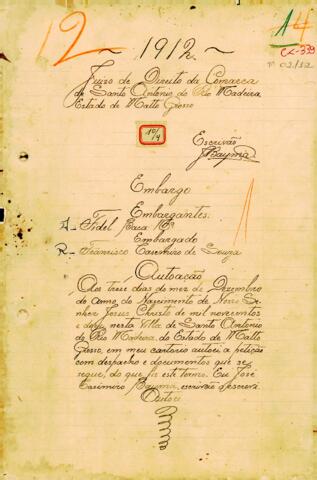 12 ~ 1912. ~ 14
CX-339
nº 02/12
Juizo de Direito da Comarca
de Santo Antonio do Rio Madeira
Estado de Matto Grosso
10/4
Escrivão
JBayma
Embargo
Embargantes
A- Fidel Baca
Embargado
R- Francisco Casemiro de Souza
Autoação
Aos trez dias do mez de Dezembro
do anno do Nascimento de Nosso Se-
nhor Jesus Christo de mil novecentos
e doze, nesta Villa de Santo Antonio
do Rio Madeira, do Estado de Matto
Grosso, em meu cartorio autoei a petição
com despacho e documentos que se
segue, do que fiz este termo. Eu José
Casimiro Bayma, escrivão o escrevi.